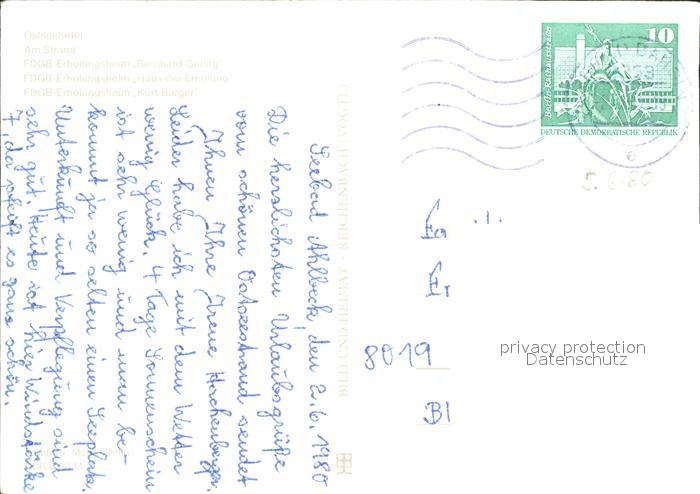 Ostseehotel
Am Strand
FDGB-Erholungsheim „Bernhard Göring"
FDGB-Erholungsheim „Haus der Erholung
FDGB-Erholungsheim „Kurt Bürger"
Seebad Ahlbeck, den 2.6.1980
Die herzlichsten Urlaubsgrüße
vom schönen Ostseestrand sendet
Ihnen Ihre Irene Hachenberger.
Leider habe ich mit dem Wetter
wenig Glück. 4 Tage Sonnenschein
ist sehr wenig und man be-
kommt ja so selten einen Seeplatz.
Unterkunft und Verpflegung sind
sehr gut. Heute ist hier Windstärke
7, da pfeift es ganz schön.
BILD UND HEIMAT · REICHENBACH (VOGTL)
10
Berlin, Rathausstraße
DEUTSCHE DEMOKRATISCHE REPUBLIK
5.6.80
Fa
Er
8019
Bl
privacy protection
Datenschutz